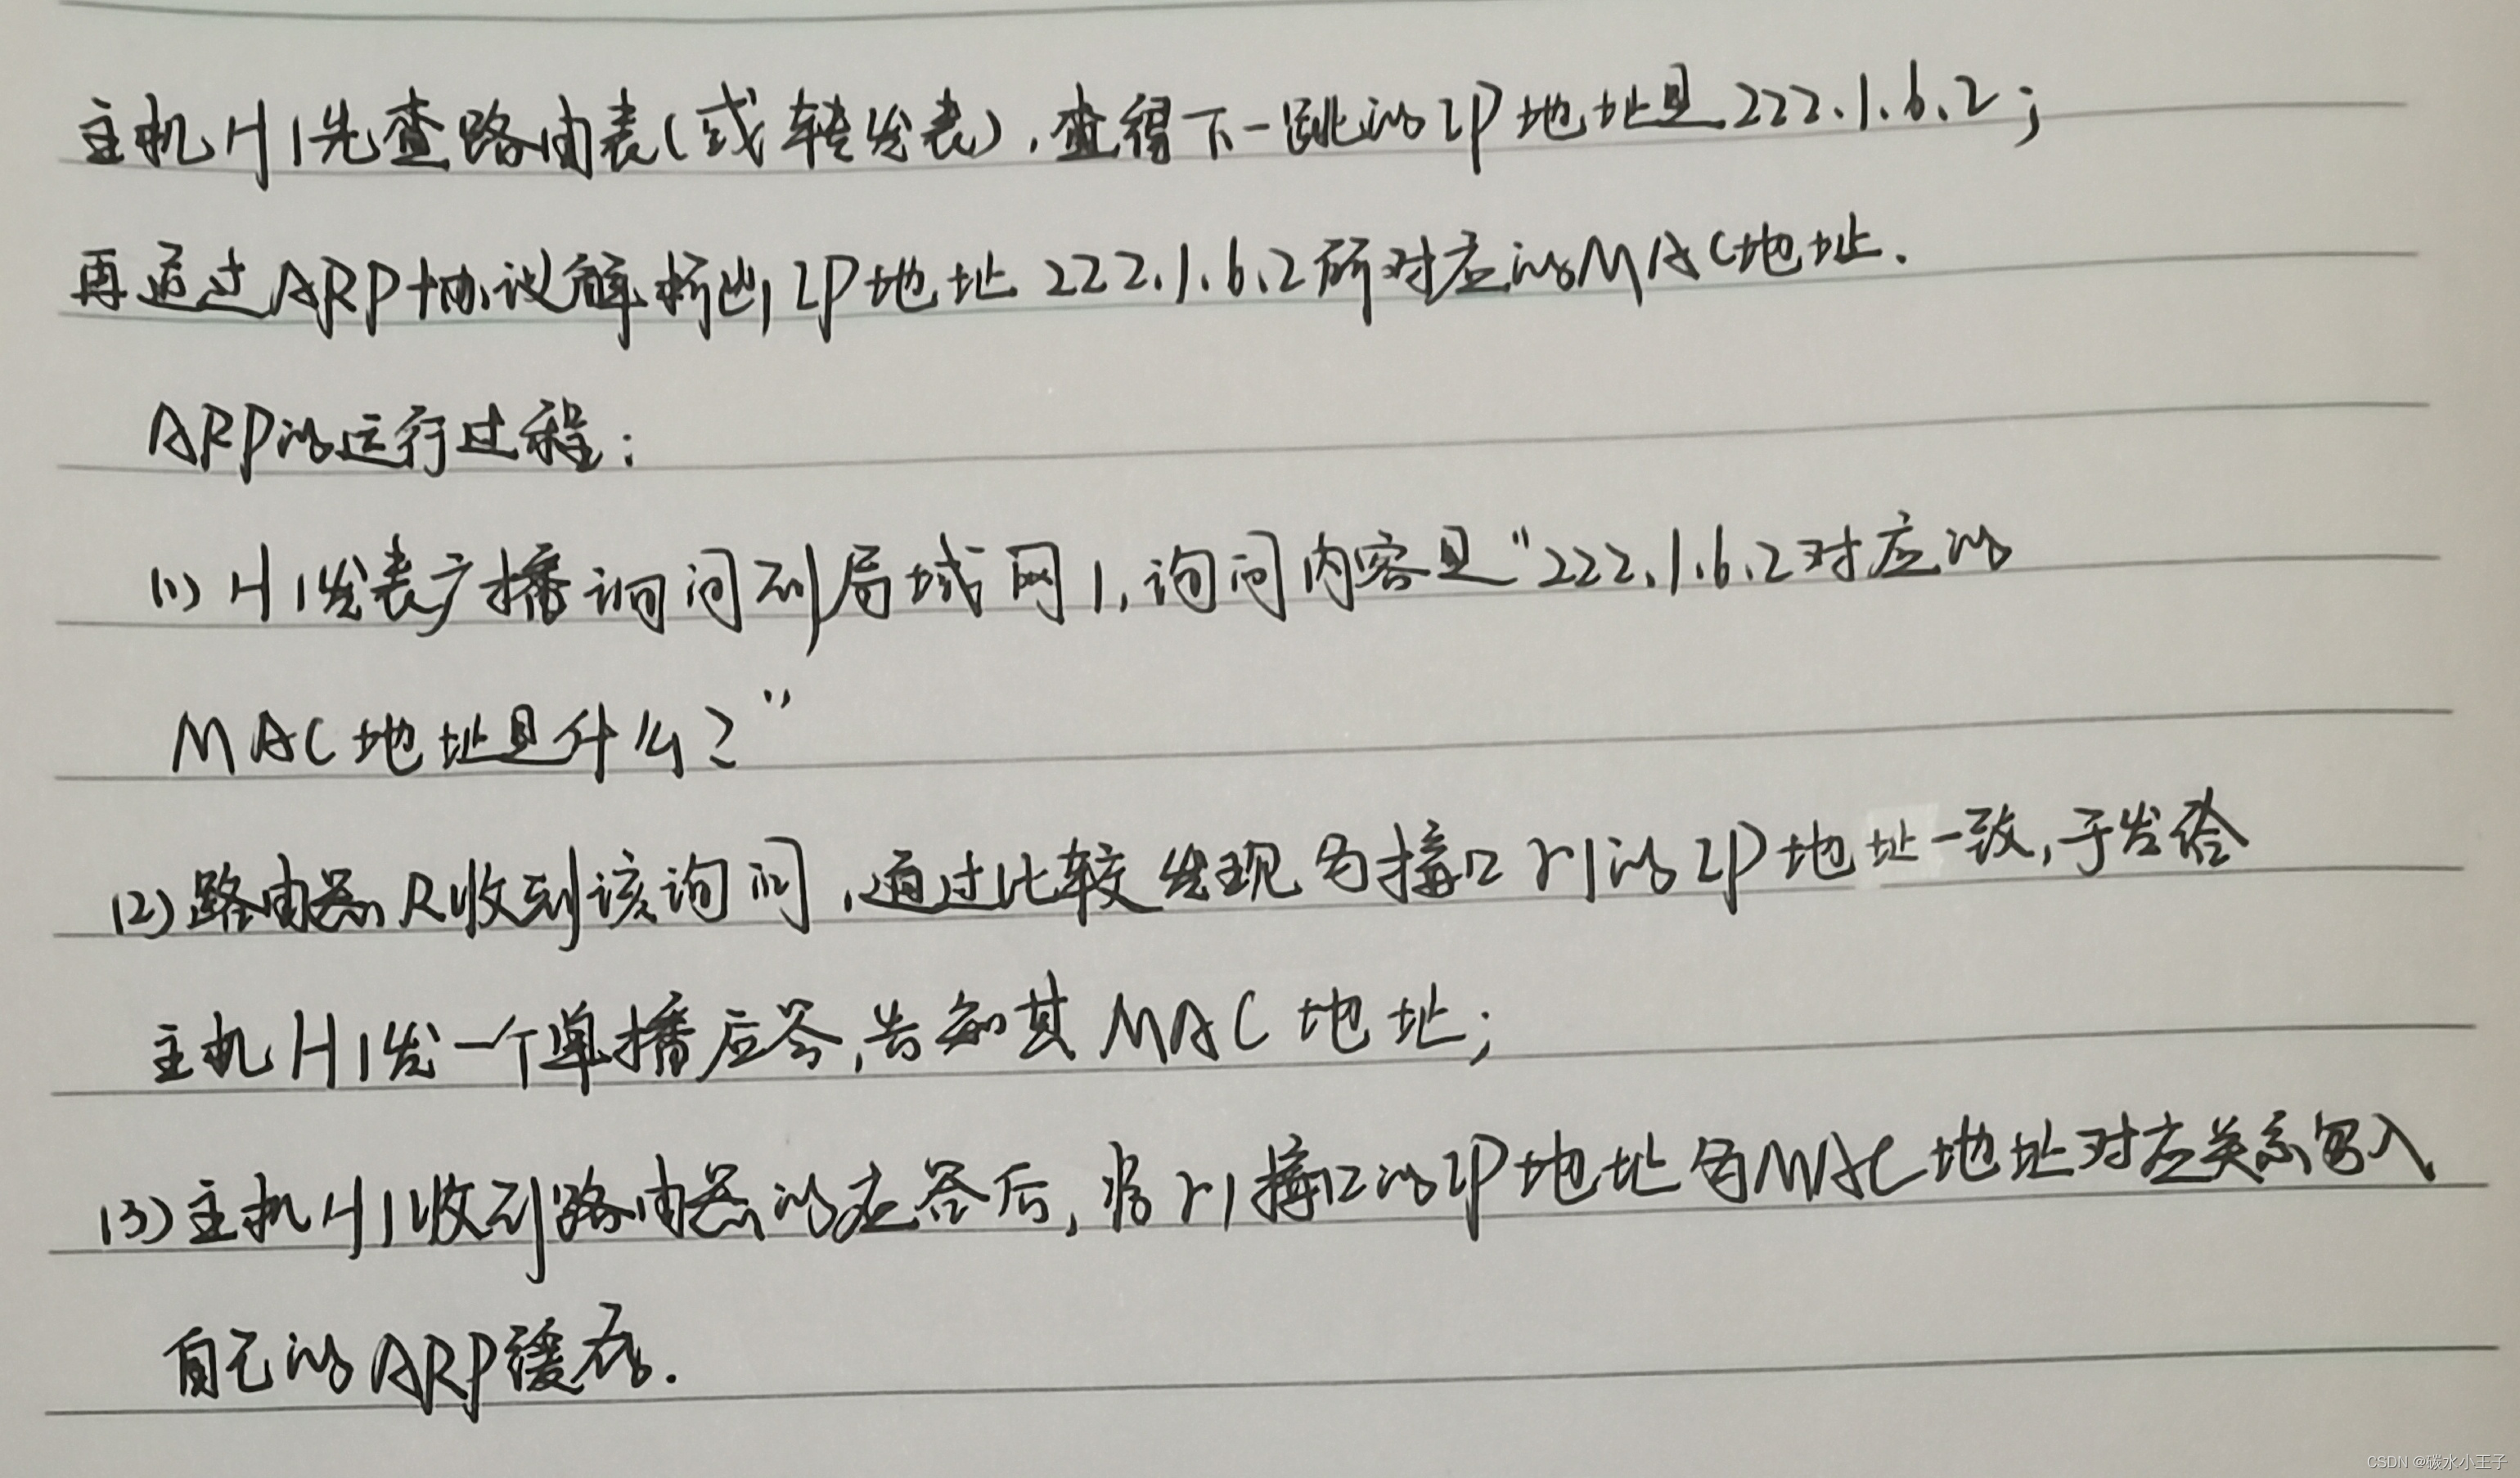 主机H1先查路由表(或转发表),查得下一跳的IP地址是222.1.6.2;
再通过ARP协议解析出IP地址222.1.6.2所对应的MAC地址.
ARP的运行过程:
(1) H1发表广播询问到局域网1,询问内容是"222.1.6.2对应的
MAC地址是什么?"
(2)路由器R收到该询问,通过比较发现与接口r1的IP地址一致,于发给
主机H1发一个单播应答,告知其MAC地址;
(3)主机H1收到路由器的应答后,将r1接口的IP地址与MAC地址对应关系写入
自己的ARP缓存.
CSDN @碳水小王子